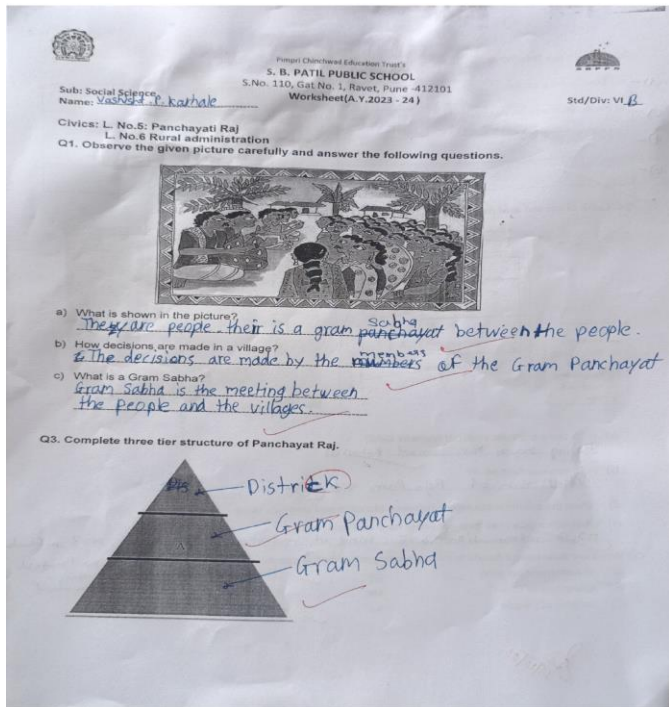 Pimpri Chinchwad Education Trust's
S. B. PATIL PUBLIC SCHOOL
S.No. 110, Gat No. 1, Ravet, Pune -412101
Sub: Social Science
Worksheet(A.Y.2023 - 24)
Name: Vashisht .P. Karhale
Std/Div: VI B
Civics: L. No.5: Panchayati Raj
L. No.6 Rural administration
Q1. Observe the given picture carefully and answer the following questions.
a) What is shown in the picture?
Sabha
They are people. their is a gram panchayat between the people.
b) How decisions are made in a village?
members
The decisions are made by the of the Gram Panchayat
c) What is a Gram Sabha?
Gram Sabha is the meeting between
the people and the villages.
Q3. Complete three tier structure of Panchayat Raj.
Districk
Gram Panchayat
Gram Sabha